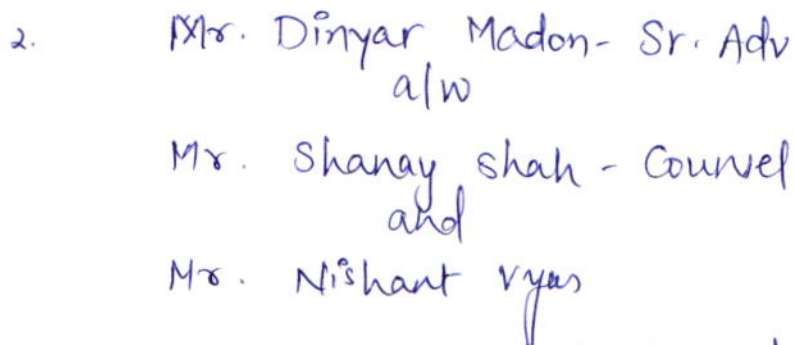 2. Mr. Dinyar Madon - Sr. Adv
a/w
Mr. Shanay shah - Counsel
and
Mr. Nishant Vyas